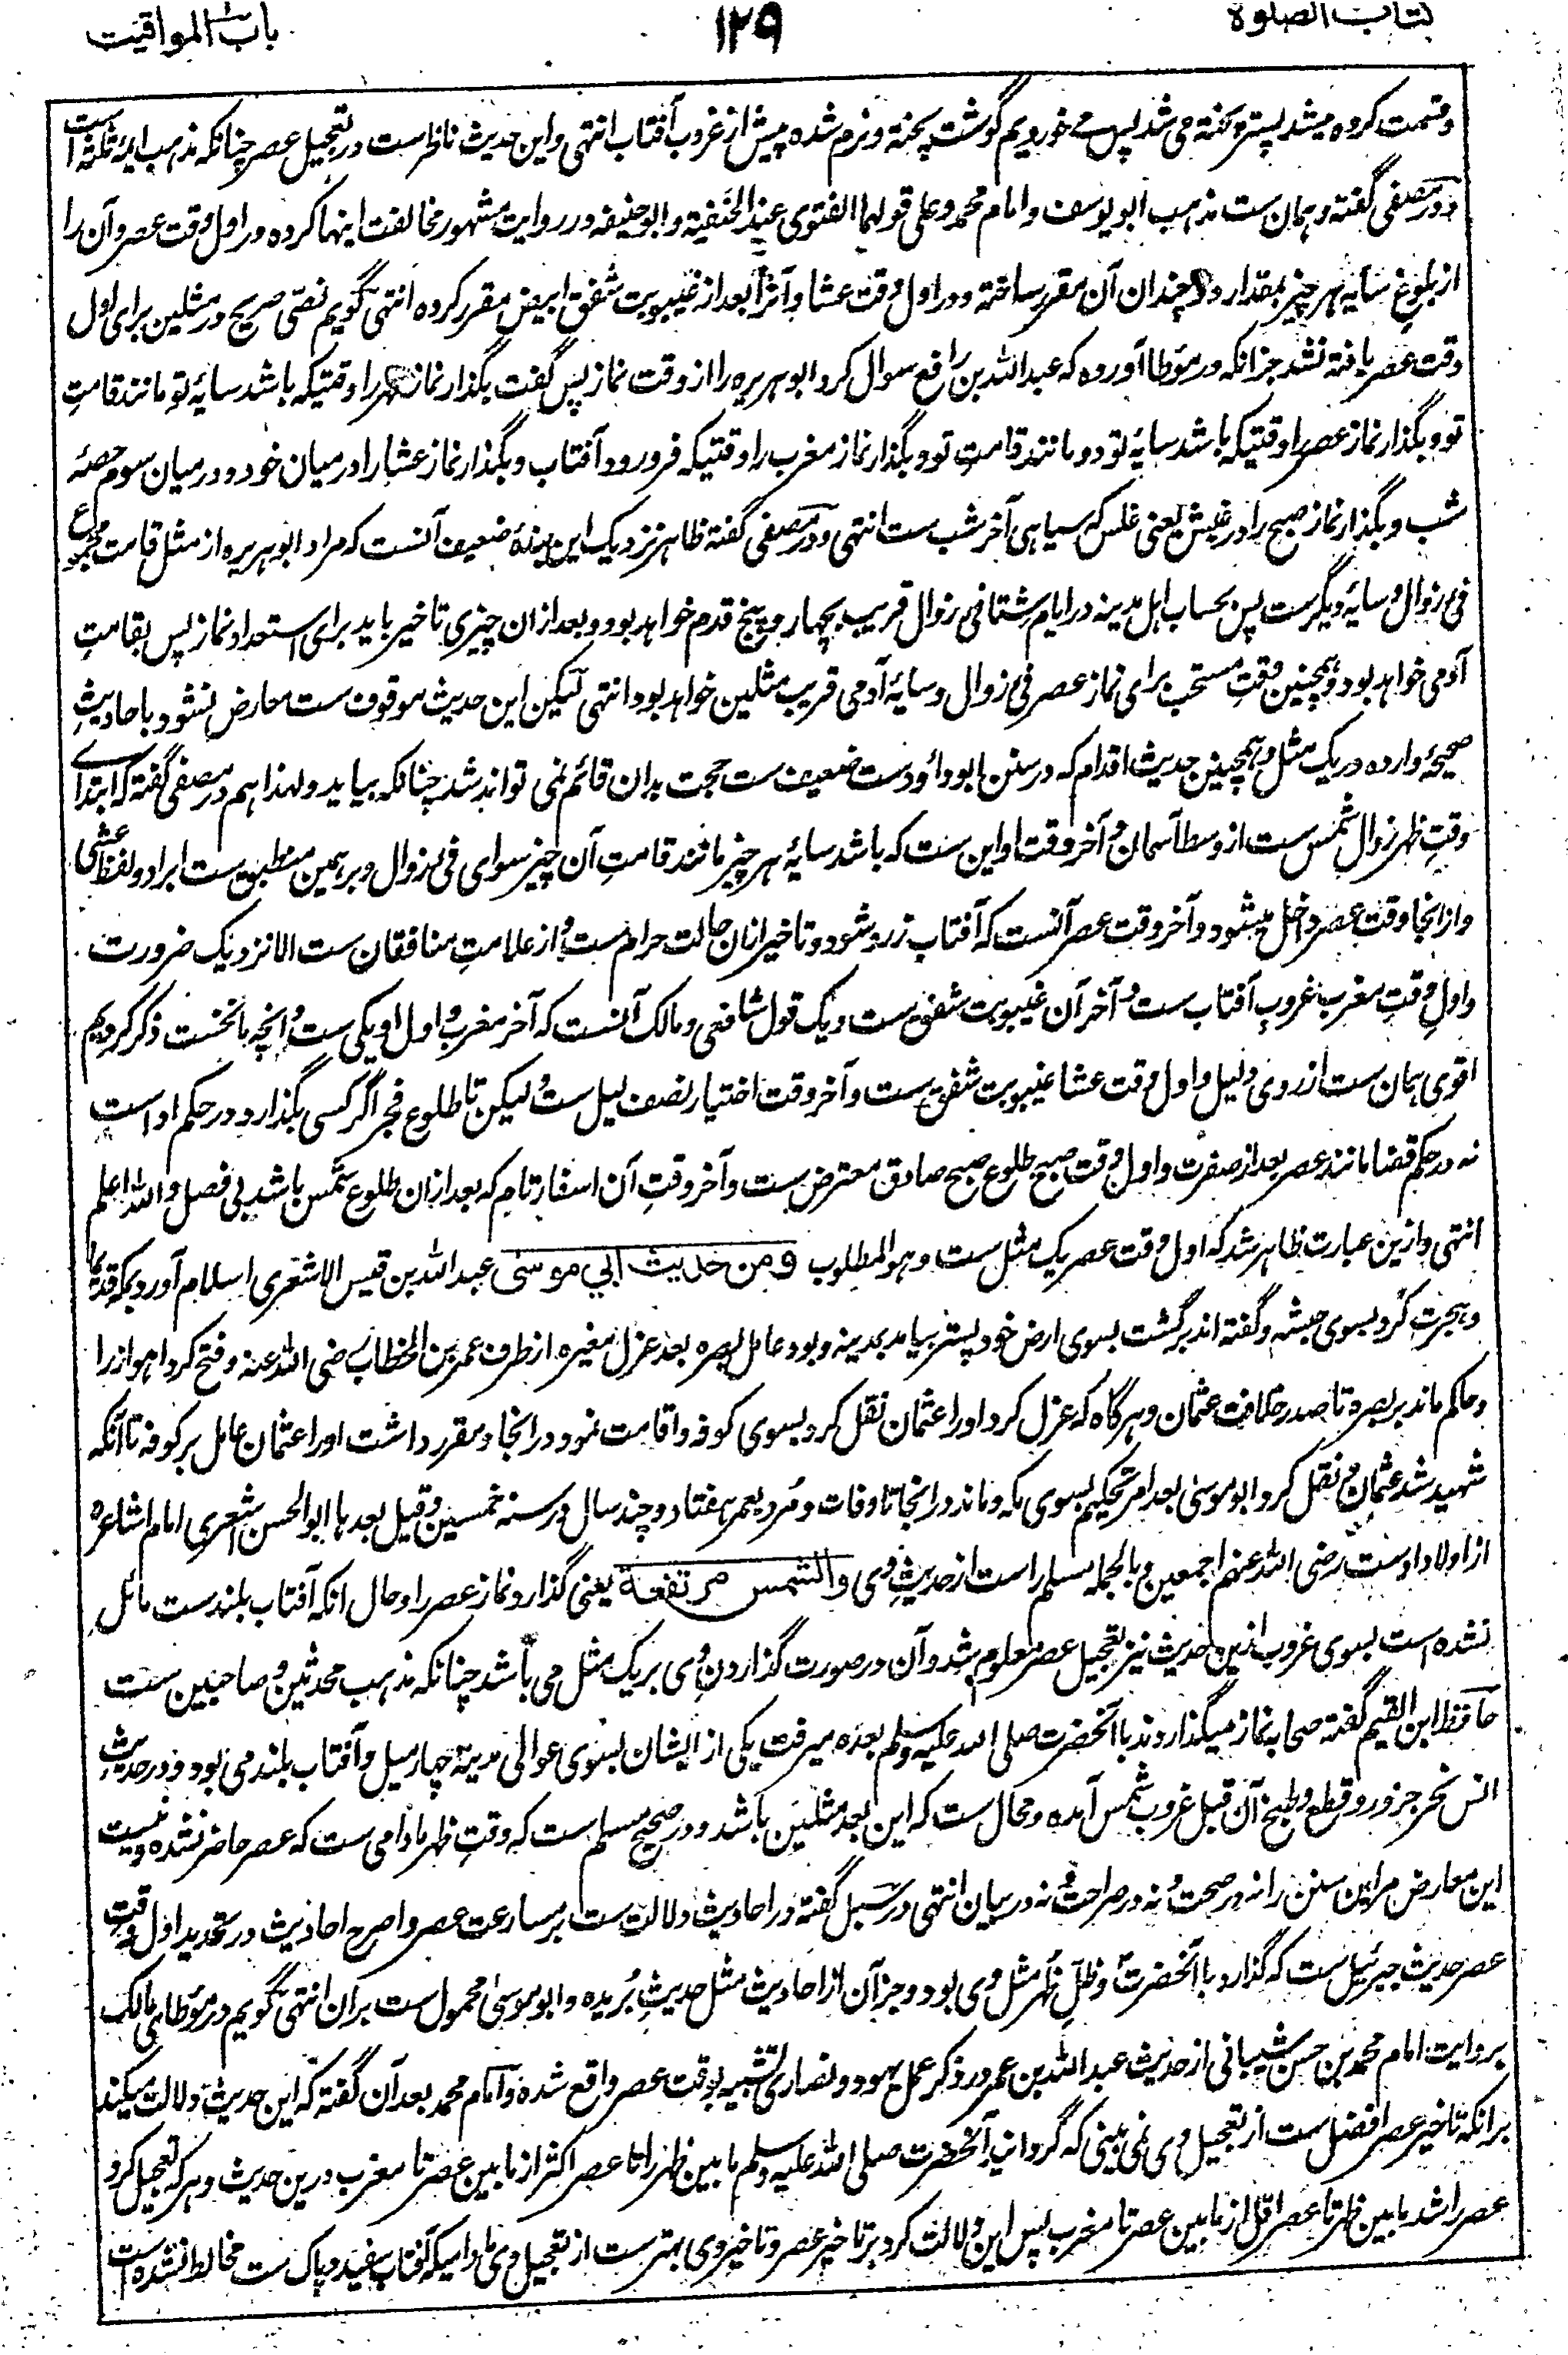 کتاب الصلوة
۱۲۹
باب المواقیت
وقسمت کرده میشد پستر پخته می شد پس می خوردیم گوشت پخته و نرم شده پیش از غروب آفتاب انتهی و این حدیث ناظرست در تعجیل عصر چنانکه مذهب ایمۀ ثلثه است
و در مصفی گفته و همان ست مذهب ابو یوسف و امام محمد و علی قولهما الفتوی عند الحنفیة و ابو حنیفه در روایت مشهور مخالفت اینها کرده در اول وقت عصر و آن را
از بلوغ سایۀ هر چیز بمقدار دو چندان آن مقرر ساخته و در اول وقت عشا و آنرا بعد از غیبوبت شفق ابیض مقرر کرده انتهی گویم نصی صریح در مثلین برای اول
وقت عصر یافته نشد جز آنکه در مؤطا آورده که عبد الله بن رافع سوال کرد ابو هریره را از وقت نماز پس گفت بگذار نماز ظهر را وقتیکه باشد سایۀ تو مانند قامتِ
تو و بگذار نماز عصر را وقتیکه باشد سایۀ تو دو مانند قامتِ تو و بگذار نماز مغرب را وقتیکه فرو رود آفتاب و بگذار نماز عشا را در میان خود و در میان سوم حصۀ
شب و بگذار نماز صبح را در غبش یعنی غلس که سیاهی آخر شب ست انتهی و در مصفی گفته ظاهر نزدیک این بندۀ ضعیف آنست که مراد ابو هریره از مثل قامت مجموع
فی زوال و سایۀ دیگرست پس بحساب اهل مدینه در ایام شتا فی زوال قریب بچهار و پنج قدم خواهد بود و بعد ازان چیزی تاخیر باید برای استعداد نماز پس بقامتِ
آدمی خواهد بود و همچنین وقتِ مستحب برای نماز عصر فی زوال و سایۀ آدمی قریب مثلین خواهد بود انتهی لیکن این حدیث موقوف ست معارض نشود باحادیثِ
صحیحۀ وارده در یک مثل و همچنین حدیث اقدام که در سنن ابو داؤدست ضعیف ست حجت بدان قائم نمی تواند شد چنانکه بیاید و لهذا هم در مصفی گفته که ابتدای
وقتِ ظهر زوال شمس ست از وسط آسمان و آخر وقت او این ست که باشد سایۀ هر چیز مانند قامتِ آن چیز سوای فی زوال و بر همین منطبق ست ابراد و لفظ عشی
و از انجا وقت عصر داخل میشود و آخر وقت عصر آنست که آفتاب زرد شود و تاخیر ازان حالت حرام ست و از علامتِ منافقان ست الا نزدیک ضرورت
و اولِ وقتِ مغرب غروبِ آفتاب ست و آخر آن غیبوبت شفق ست و یک قول شافعی و مالک آنست که آخر مغرب و اول او یکی ست و آنچه ما نخست ذکر کردیم
اقوی همان ست از روی دلیل و اول وقت عشا غیبوبت شفق ست و آخر وقت اختیار نصف لیل ست و لیکن تا طلوع فجر اگر کسی بگذارد در حکم ادا ست
نه در حکم قضا مانند عصر بعد از صفرت و اول وقت صبح طلوع صبح صادق معترض ست و آخر وقتِ آن اسفار تام که بعد ازان طلوع شمس باشد بی فصل و الله اعلم
انتهی و ازین عبارت ظاهر شد که اول وقت عصر یک مثل ست و هو المطلوب ومن حدیث ابي موسی عبد الله بن قیس الاشعری اسلام آورد بمکه قدیما
و هجرت کرد بسوی حبشه و گفته اند برگشت بسوی ارض خود پستر بیامد بمدینه و بود عامل بصره بعد عزل مغیره از طرف عمر بن الخطاب رضی الله عنه و فتح کرد اهواز را
و حاکم ماند بر بصره تا صدر خلافت عثمان و هرگاه که عزل کرد او را عثمان نقل کرد بسوی کوفه و اقامت نمود در انجا و مقرر داشت او را عثمان عامل بر کوفه تا آنکه
شهید شد عثمان و نقل کرد ابو موسی بعد امر تحکیم بسوی مکه و ماند در انجا تا وفات و مُرد بعمر هفتاد و چند سال در سنه خمسین و قیل بعدها ابو الحسن اشعری امام اشاعره
از اولاد اوست رضی الله عنهم اجمعین و بالجمله مسلم راست از حدیثِ وی والشمس مرتفعة یعنی گذارد نماز عصر را و حال انکه آفتاب بلندست مائل
نشده است بسوی غروب ازین حدیث نیز تعجیل عصر معلوم شد و آن در صورت گذاردن وی بر یک مثل می باشد چنانکه مذهب محدثین و صاحبین ست
حافظ ابن القیم گفته صحابه نماز میگذاردند با آنحضرت صلی الله علیه وسلم بعده میرفت یکی از ایشان بسوی عوالی مدینه چهار میل و آفتاب بلند می بود و در حدیث
انس نحر جزور و قطع و طبخ آن قبل غروب شمس آمده و محال ست که این بعد مثلین باشد و در صحیح مسلم ست که وقتِ ظهر مادامی ست که عصر حاضر نشده و نیست
این معارض مر این سنن را نه در صحت و نه در صراحت و نه در بیان انتهی در سبل گفته در احادیث دلالت ست بر مسارعت عصر و اصرح احادیث در تحدید اول وقت
عصر حدیث جبرئیل ست که گذارد با آنحضرت و ظلِ ظُهر مثل وی بود و جز آن از احادیث مثل حدیثِ بُریده و ابو موسی محمول ست بران انتهی گویم در مؤطای مالک
بروایت امام محمد بن حسن شیبانی از حدیث عبد الله بن عمر در ذکر عمل یهود و نصاری تشبیه بوقت عصر واقع شده و امام محمد بعد آن گفته که این حدیث دلالت میکند
بر انکه تاخیر عصر افضل ست از تعجیل وی نمی بینی که گردانید آنحضرت صلی الله علیه وسلم ما بین ظهر را تا عصر اکثر از ما بین عصر تا مغرب درین حدیث و هر که تعجیل کرد
عصر را شد ما بین ظهر تا عصر اقل از ما بین عصر تا مغرب پس این دلالت کرد بر تاخیر عصر و تاخیر وی بهترست از تعجیل وی مادامیکه آفتاب سفید و پاک ست مخالط نشده است